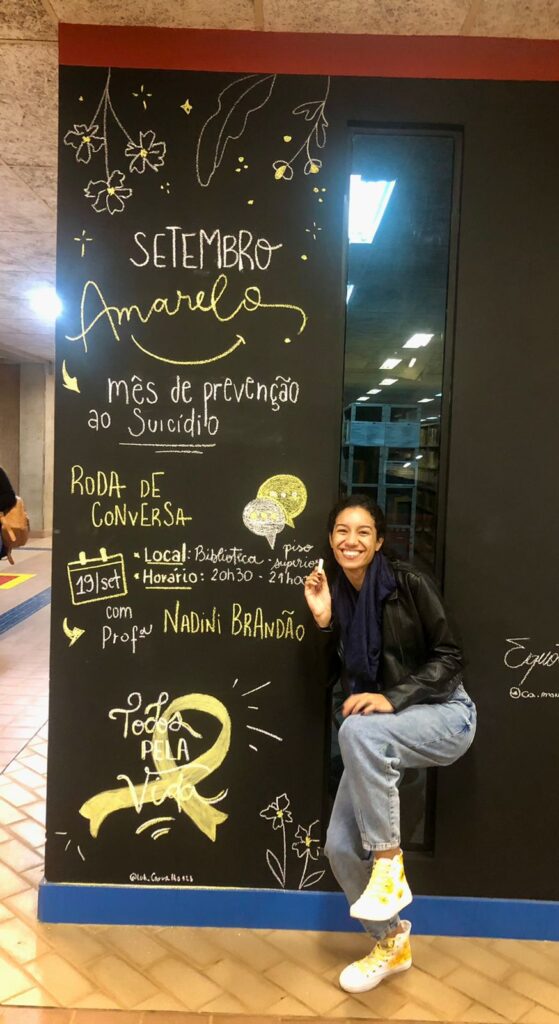 SETEMBRO
Amarelo
mês de prevenção
ao Suicídio
RODA DE
CONVERSA
19/set
• Local: Biblioteca - piso
superior
• Horário: 20h30 - 21h
com
Profª NADINI BRANDÃO
Todos
PELA
Vida